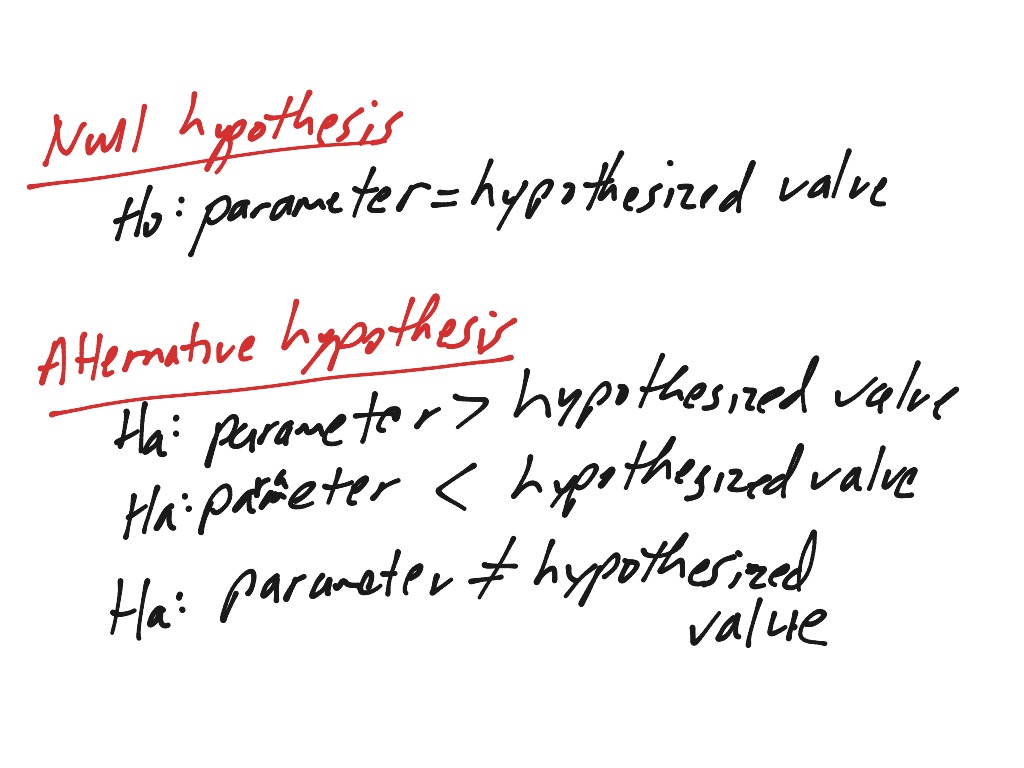 Null hypothesis
Ho: parameter = hypothesized value
Alternative hypothesis
Ha: parameter > hypothesized value
Ha: parameter < hypothesized value
Ha: parameter ≠ hypothesized
value